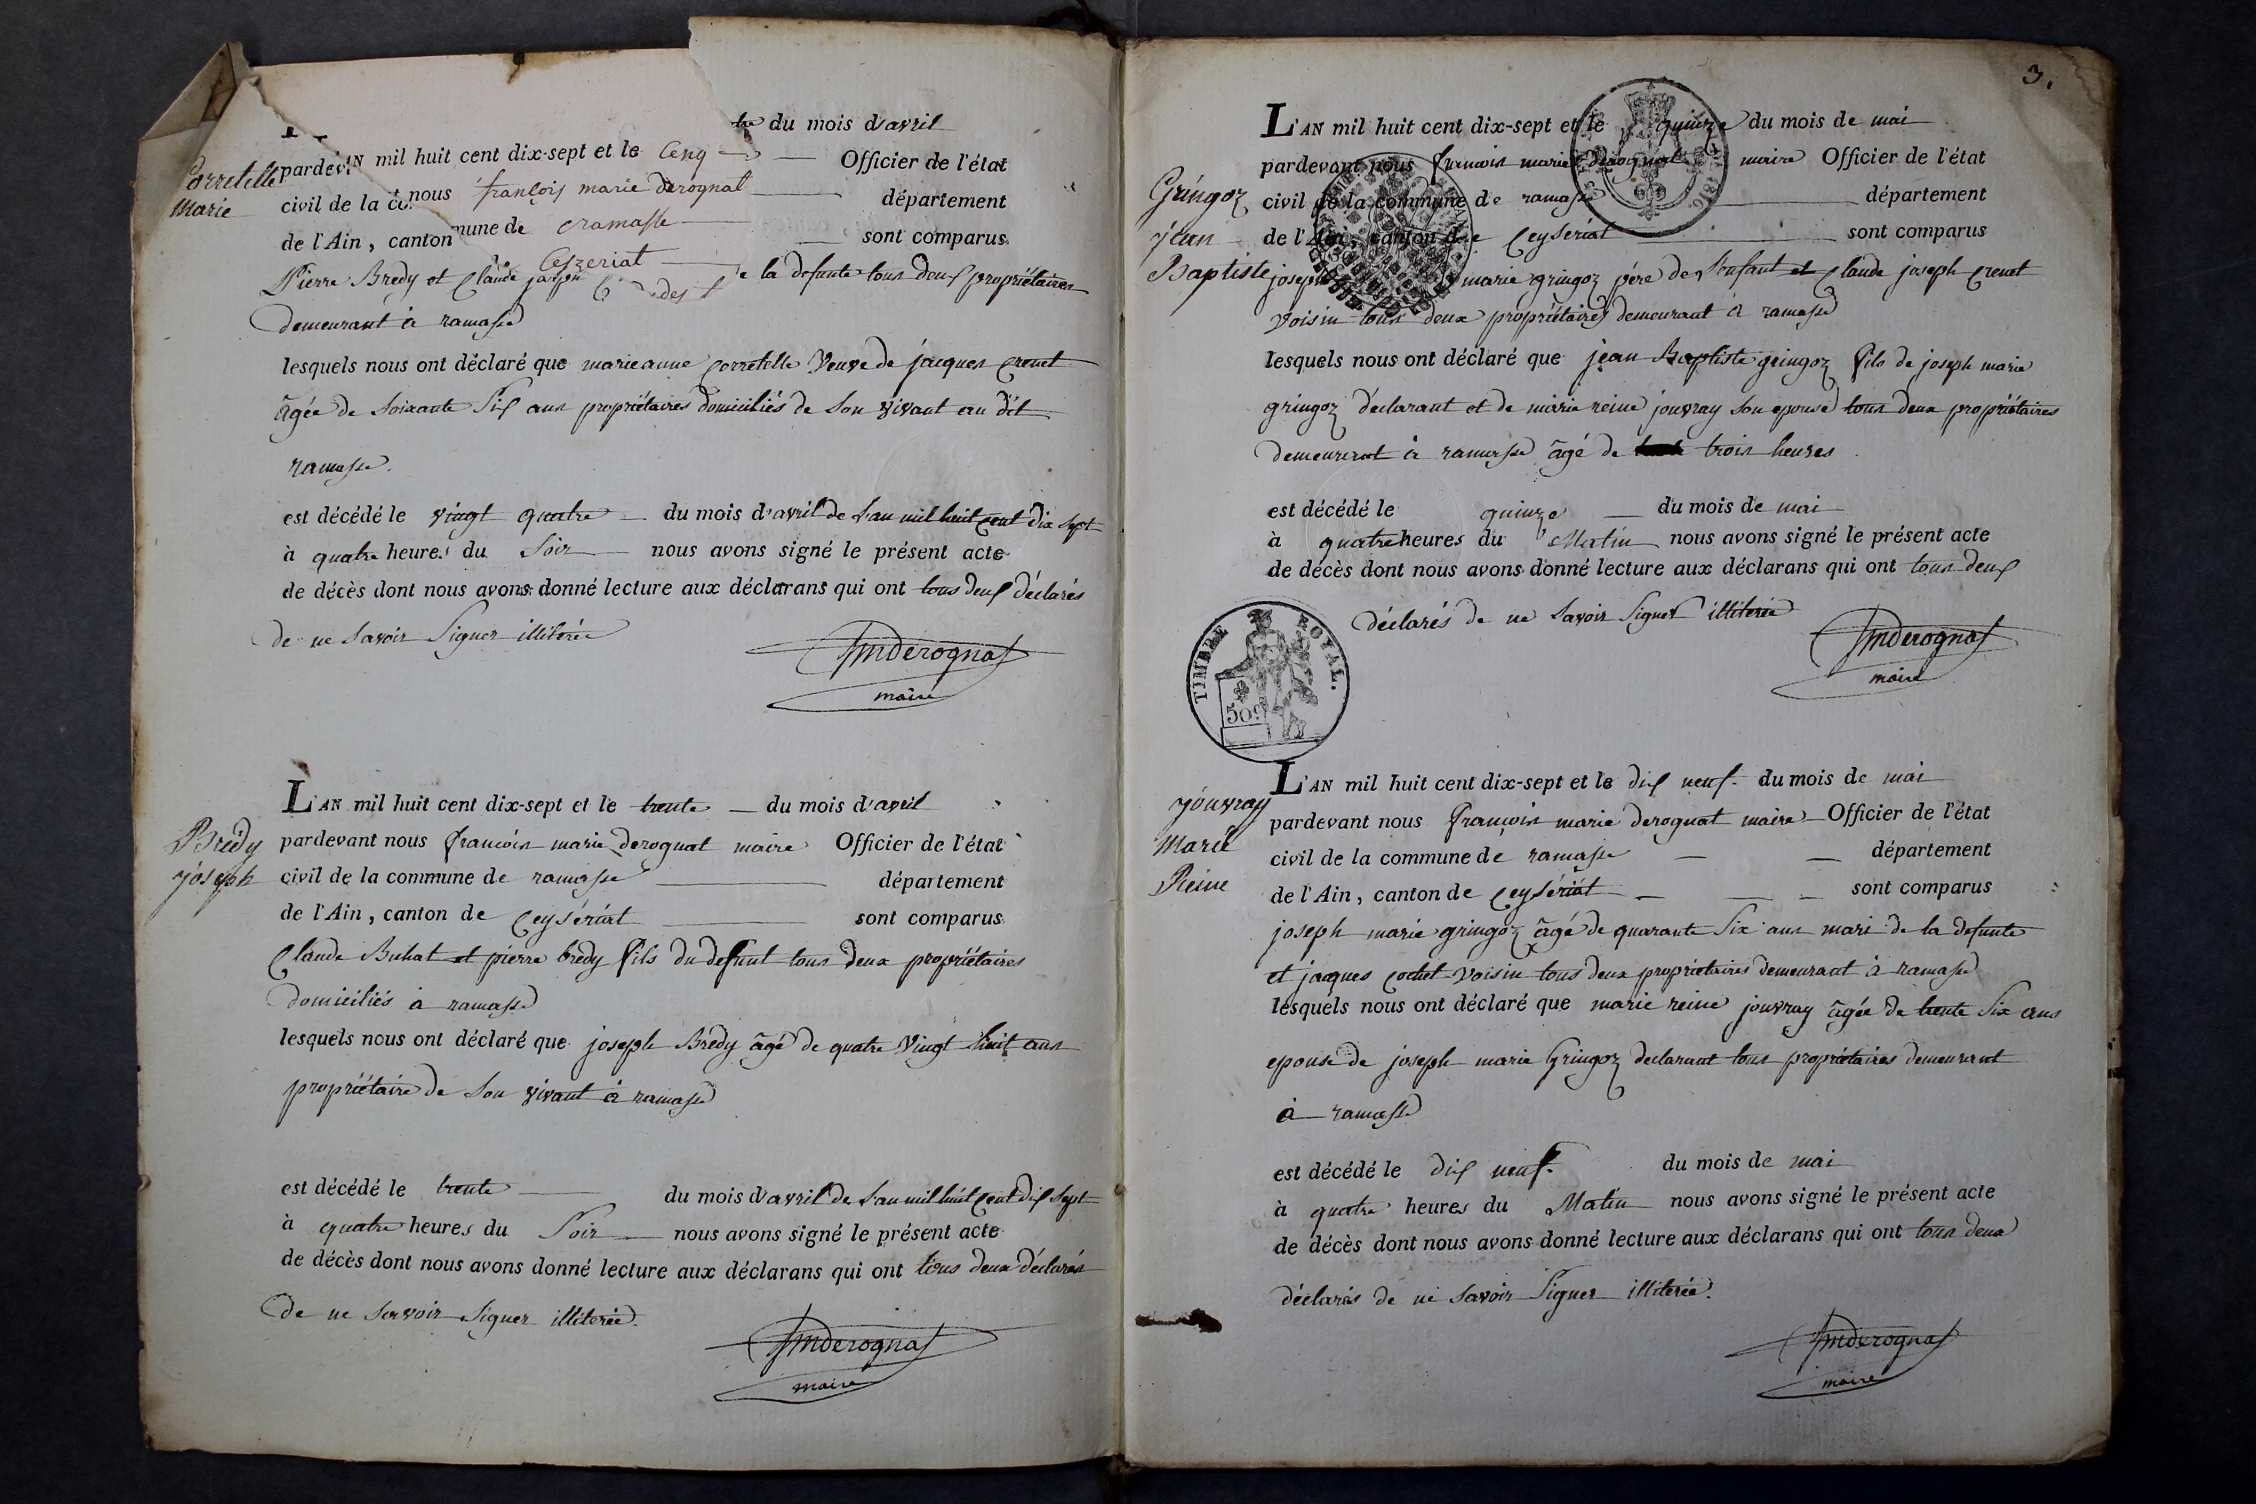 tre du mois d'avril
AN mil huit cent dix-sept et le cinq
pardev nous françois marie derognat Officier de l'état
civil de la co mune de ramasse département
de l'Ain, canton Ceyzeriat sont comparus
Pierre Bredy et Claude joseph e la defunte tous deux propriétaires
demeurant à ramasse
lesquels nous ont déclaré que marie anne corretelle veuve de jacques crenet
âgée de soixante six ans propriétaires domiciliés de son vivant au dit
ramasse.
est décédé le vingt quatre du mois d'avril de l'an mil huit cent dix sept
à quatre heures du soir nous avons signé le présent acte
de décès dont nous avons donné lecture aux déclarans qui ont tous deux déclarés
de ne savoir signer illiterée
fmderognat
maire
Corretelle
Marie
L'AN mil huit cent dix-sept et le trente du mois d'avril
pardevant nous francois marie derognat maire Officier de l'état
civil de la commune de ramasse département
de l'Ain, canton de Ceysériat sont comparus
Claude Buhat et pierre bredy fils du defunt tous deux propriétaires
domiciliés à ramasse
lesquels nous ont déclaré que joseph Bredy âgé de quatre vingt huit ans
propriétaire de son vivant à ramasse
est décédé le trente du mois d'avril de l'an mil huit cent dix sept
à quatre heures du soir nous avons signé le présent acte
de décès dont nous avons donné lecture aux déclarans qui ont tous deux déclarés
de ne savoir signer illiterée.
fmderognat
maire
Brédy
joseph
3.
L'AN mil huit cent dix-sept et le quinze du mois de mai
pardevant nous francois marie derognat maire Officier de l'état
civil de la commune de ramasse département
de l'Ain, canton de Ceyseriat sont comparus
joseph marie gringoz père de l'enfant et Claude joseph crenet
voisin tous deux propriétaires demeurant à ramasse
lesquels nous ont déclaré que jean Baptiste gringoz fils de joseph marie
gringoz déclarant et de marie reine jouvray son epouse tous deux propriétaires
demeurant à ramasse âgé de trois heures
est décédé le quinze du mois de mai
à quatre heures du Matin nous avons signé le présent acte
de décès dont nous avons donné lecture aux déclarans qui ont tous deux
déclarés de ne savoir signer illiterée
fmderognat
maire
Gringoz
jean
Baptiste
TIMBRE ROYAL.
50c
L'AN mil huit cent dix-sept et le dix neuf. du mois de mai
pardevant nous francois marie derognat maire Officier de l'état
civil de la commune de ramasse département
de l'Ain, canton de Ceysériat sont comparus
joseph marie gringoz âgé de quarante six ans mari de la defunte
et jacques cochet voisin tous deux proprietaires demeurant à ramasse
lesquels nous ont déclaré que marie reine jouvray âgée de trente six ans
epouse de joseph marie Gringoz declarant tous propriétaires demeurant
à ramasse
est décédé le dix neuf. du mois de mai
à quatre heures du Matin nous avons signé le présent acte
de décès dont nous avons donné lecture aux déclarans qui ont tous deux
déclarés de ne savoir signer illiterée.
fmderognat
maire
jouvray
Marie
Reine